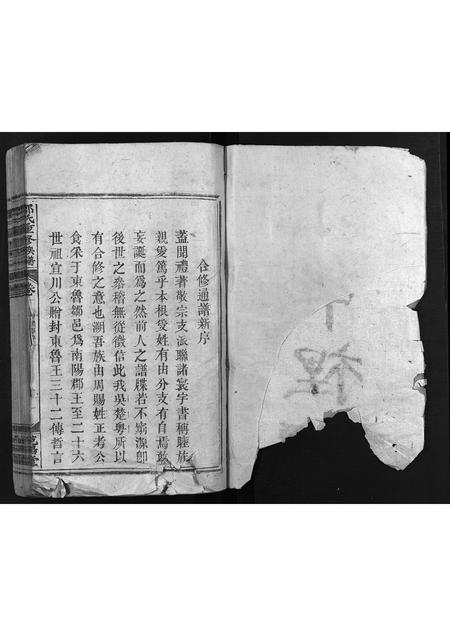 合修通譜新序
蓋聞禮著敬宗支派聯諸寰宇書稱睦族
親愛篤乎本根受姓有由分支有自焉敢
妄誕而爲之然前人之譜牒若不窮源卽
後世之參稽無從徵信此我吳楚粵所以
有合修之意也溯吾族由周賜姓正考公
食采于東魯鄒邑爲南陽郡王至二十六
世祖宣川公贈封東魯王三十二傳哲言
鄒氏重修族譜